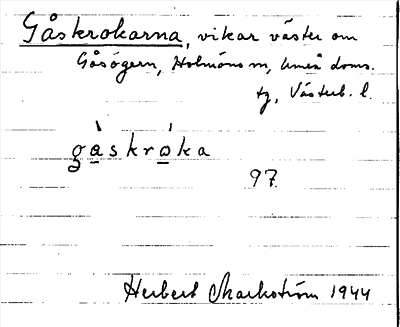 Gåskrokarna, vikar väster om
Gåsögern, Holmöns sn, Umeå doms.
tg, Västerb. l.
gὰskróka
97.
Herbert Markström 1944